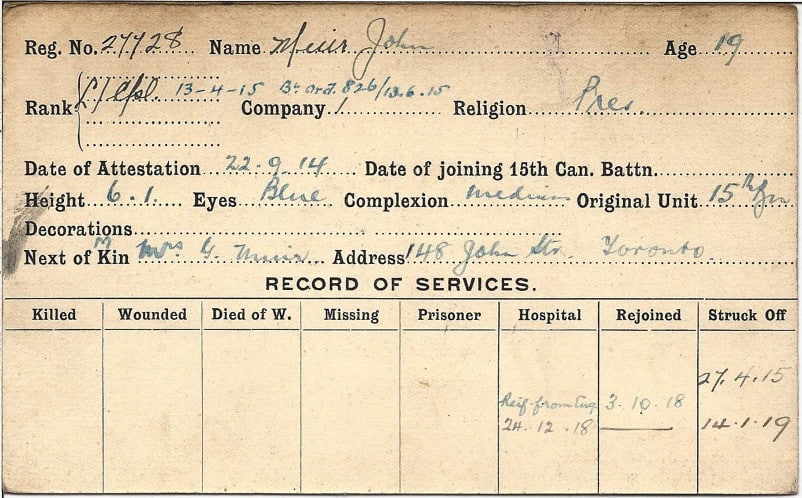 Reg. No. 27728 Name Muir John Age 19
Rank L/Cpl. 13-4-15 Bn Ord. 826/13.6.15 Company 1 Religion Pres.
Date of Attestation 22.9.14 Date of joining 15th Can. Battn.
Height 6.1 Eyes Blue Complexion Medium Original Unit 15th Bn
Decorations
Next of Kin M Mrs G. Muir Address 148 John Str. Toronto.
RECORD OF SERVICES.
Killed Wounded Died of W. Missing Prisoner Hospital Rejoined Struck Off
27.4.15
Reif. from Eng. 3.10.18
24.12.18 14.1.19